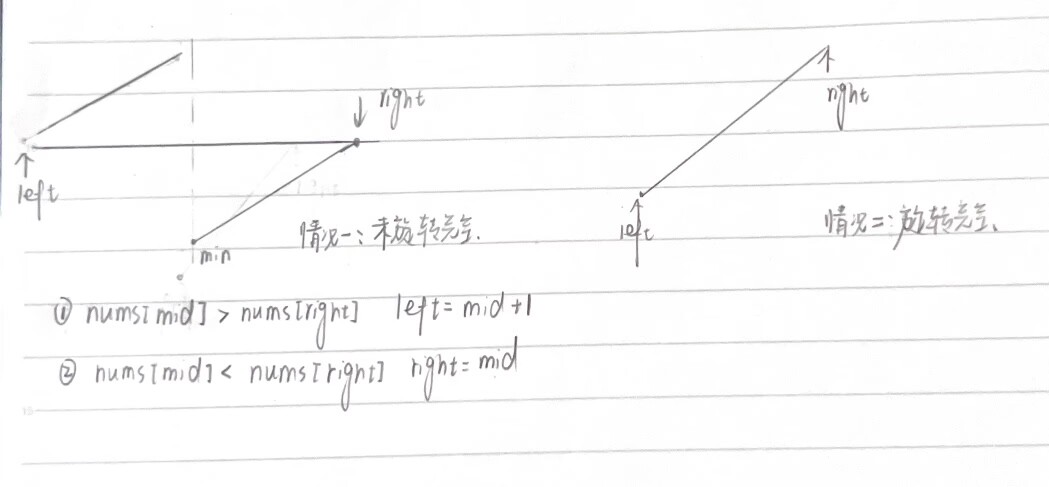 right
right
left
left
min
情况一:未旋转完全.
情况二:旋转完全.
① nums[mid] > nums[right] left = mid+1
② nums[mid] < nums[right] right = mid